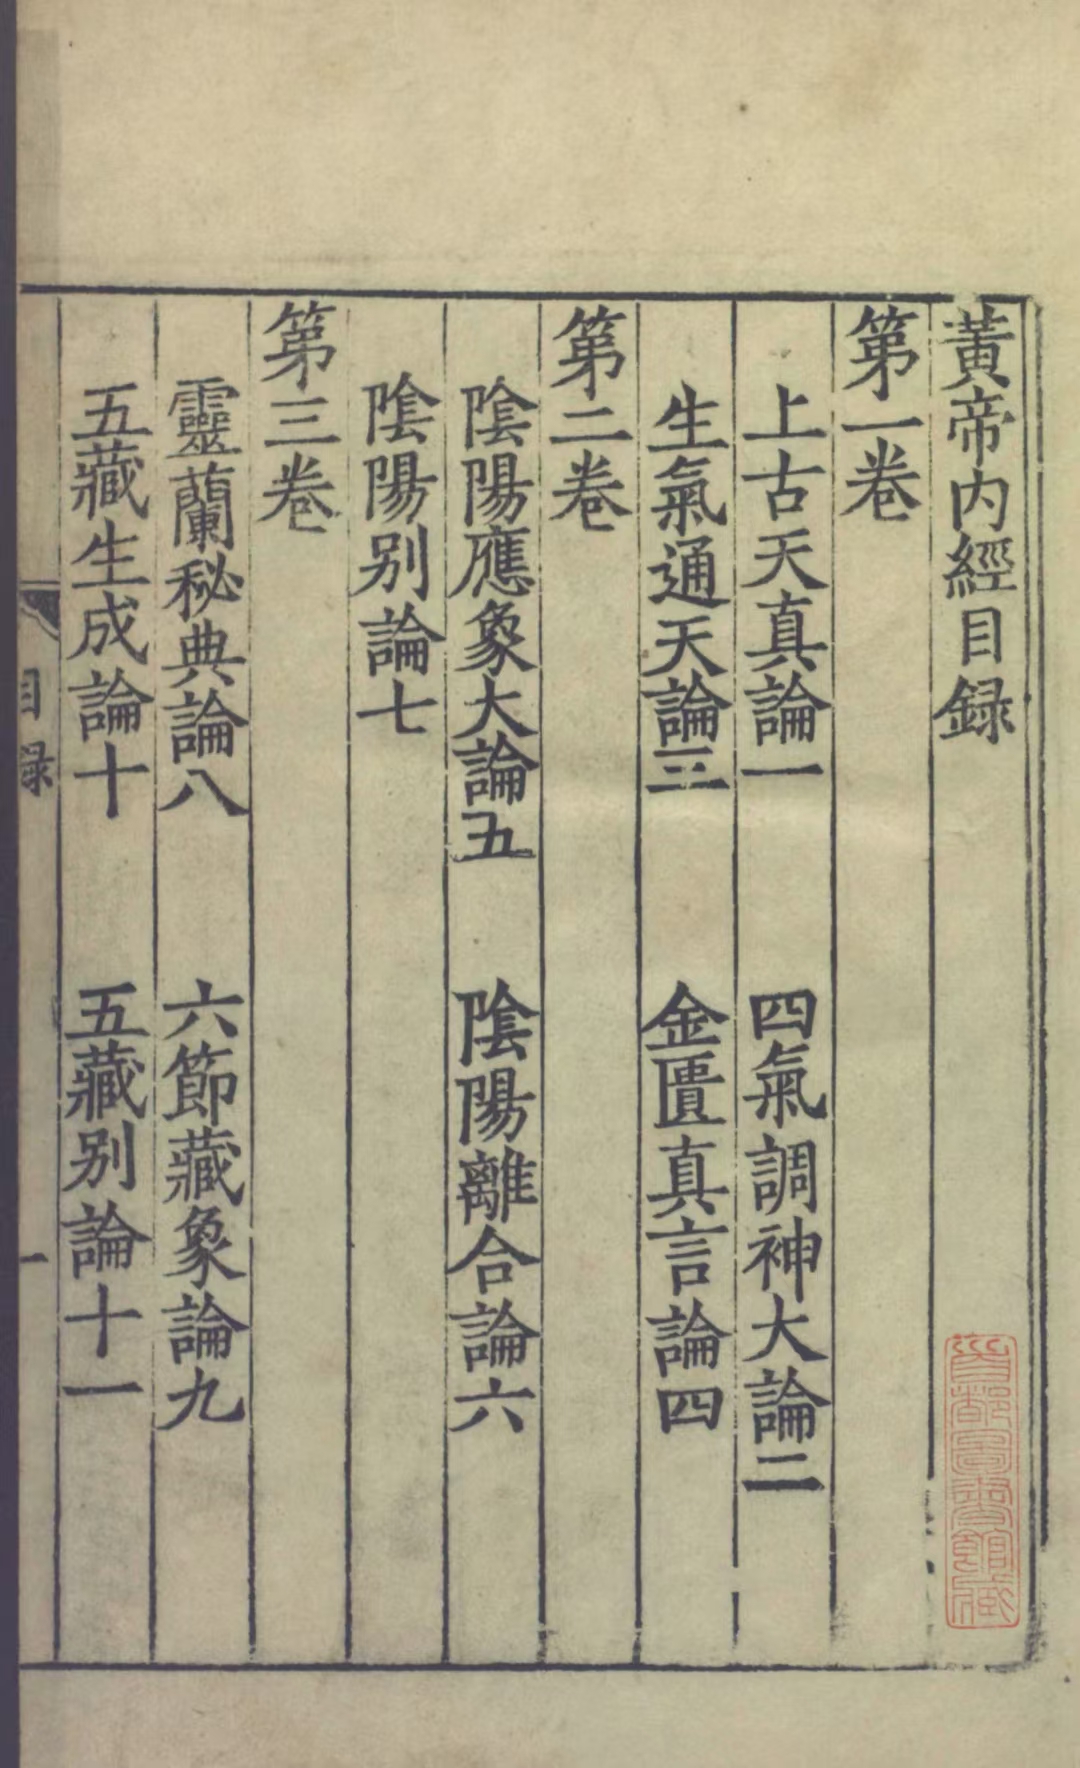 黃帝内經目録
第一卷
上古天真論一　四氣調神大論二
生氣通天論三　金匱真言論四
第二卷
陰陽應象大論五　陰陽離合論六
陰陽别論七
第三卷
靈蘭秘典論八　六節藏象論九
五藏生成論十　五藏别論十一
目録　一
首都圖書館藏